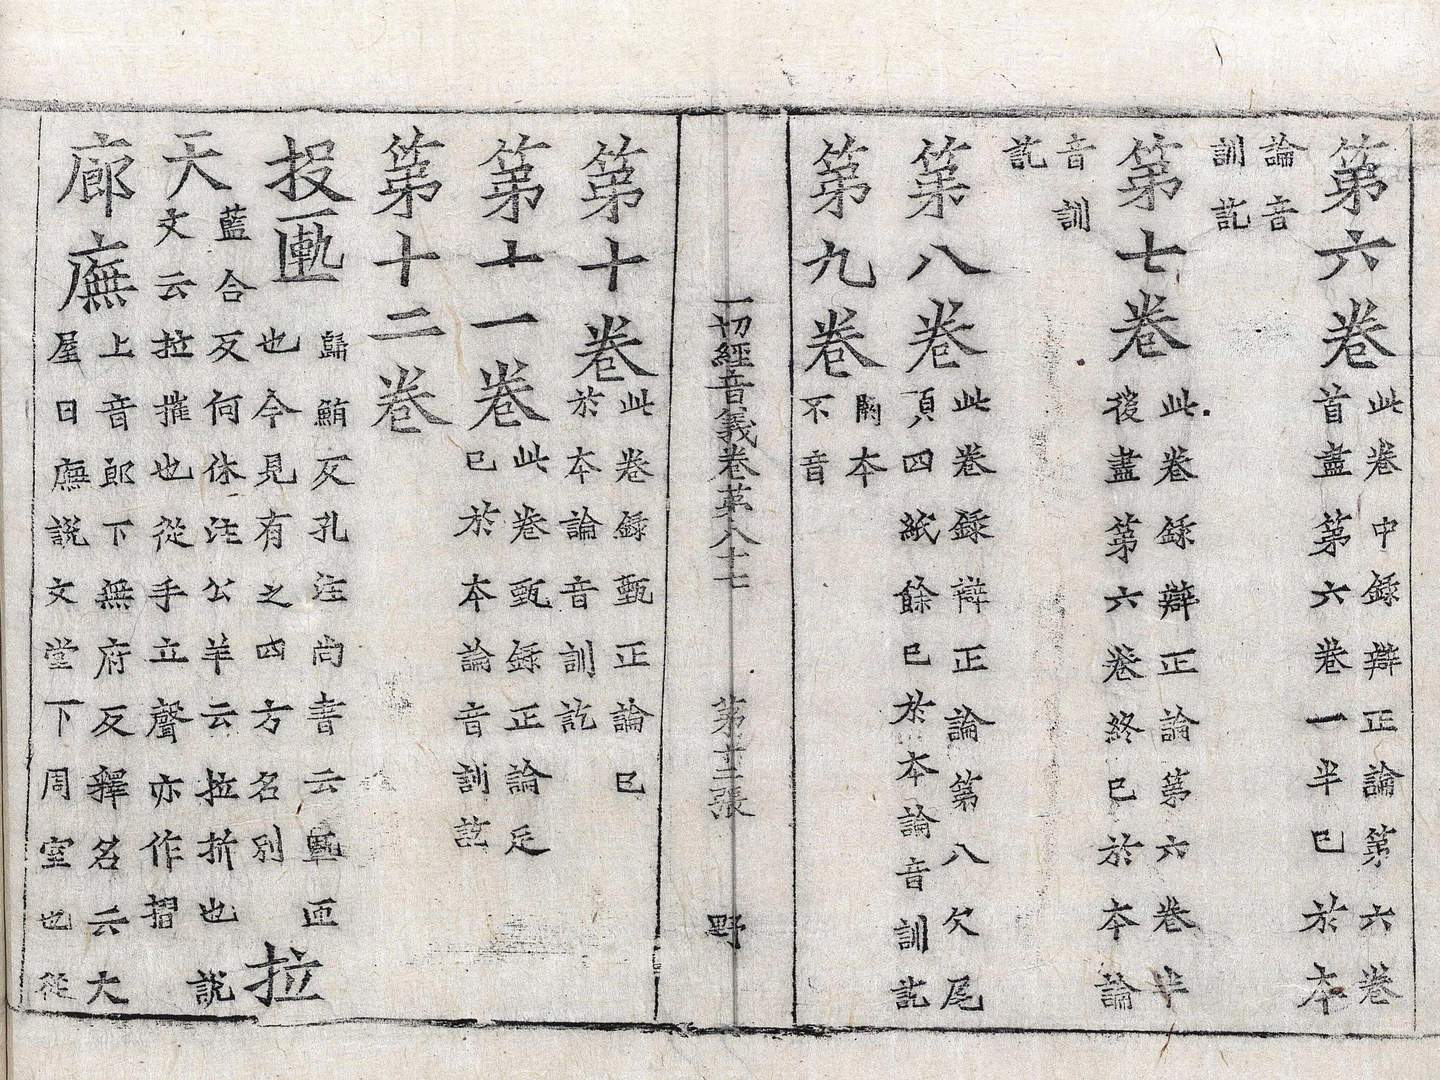 第六卷
此卷中録辯正論第六卷
首盡第六卷一半已於本
論音
訓訖
第七卷
此卷録辯正論第六卷半
後盡第六卷終已於本論
音訓
訖
第八卷
此卷録辯正論第八欠尾
頁四紙餘已於本論音訓訖
第九卷
闕本
不音
一切經音義卷苐八十七 第十二張 野
第十卷
此卷録甄正論已
於本論音訓訖
第十一卷
此卷甄録正論足
已於本論音訓訖
第十二卷
投匭
歸鮪反孔注尚書云匭匣
也今見有之四方名別
拉
天
藍合反何休注公羊云拉折也説
文云拉摧也從手立聲亦作摺
廊廡
上音郎下無府反釋名云大
屋曰廡説文堂下周室也從